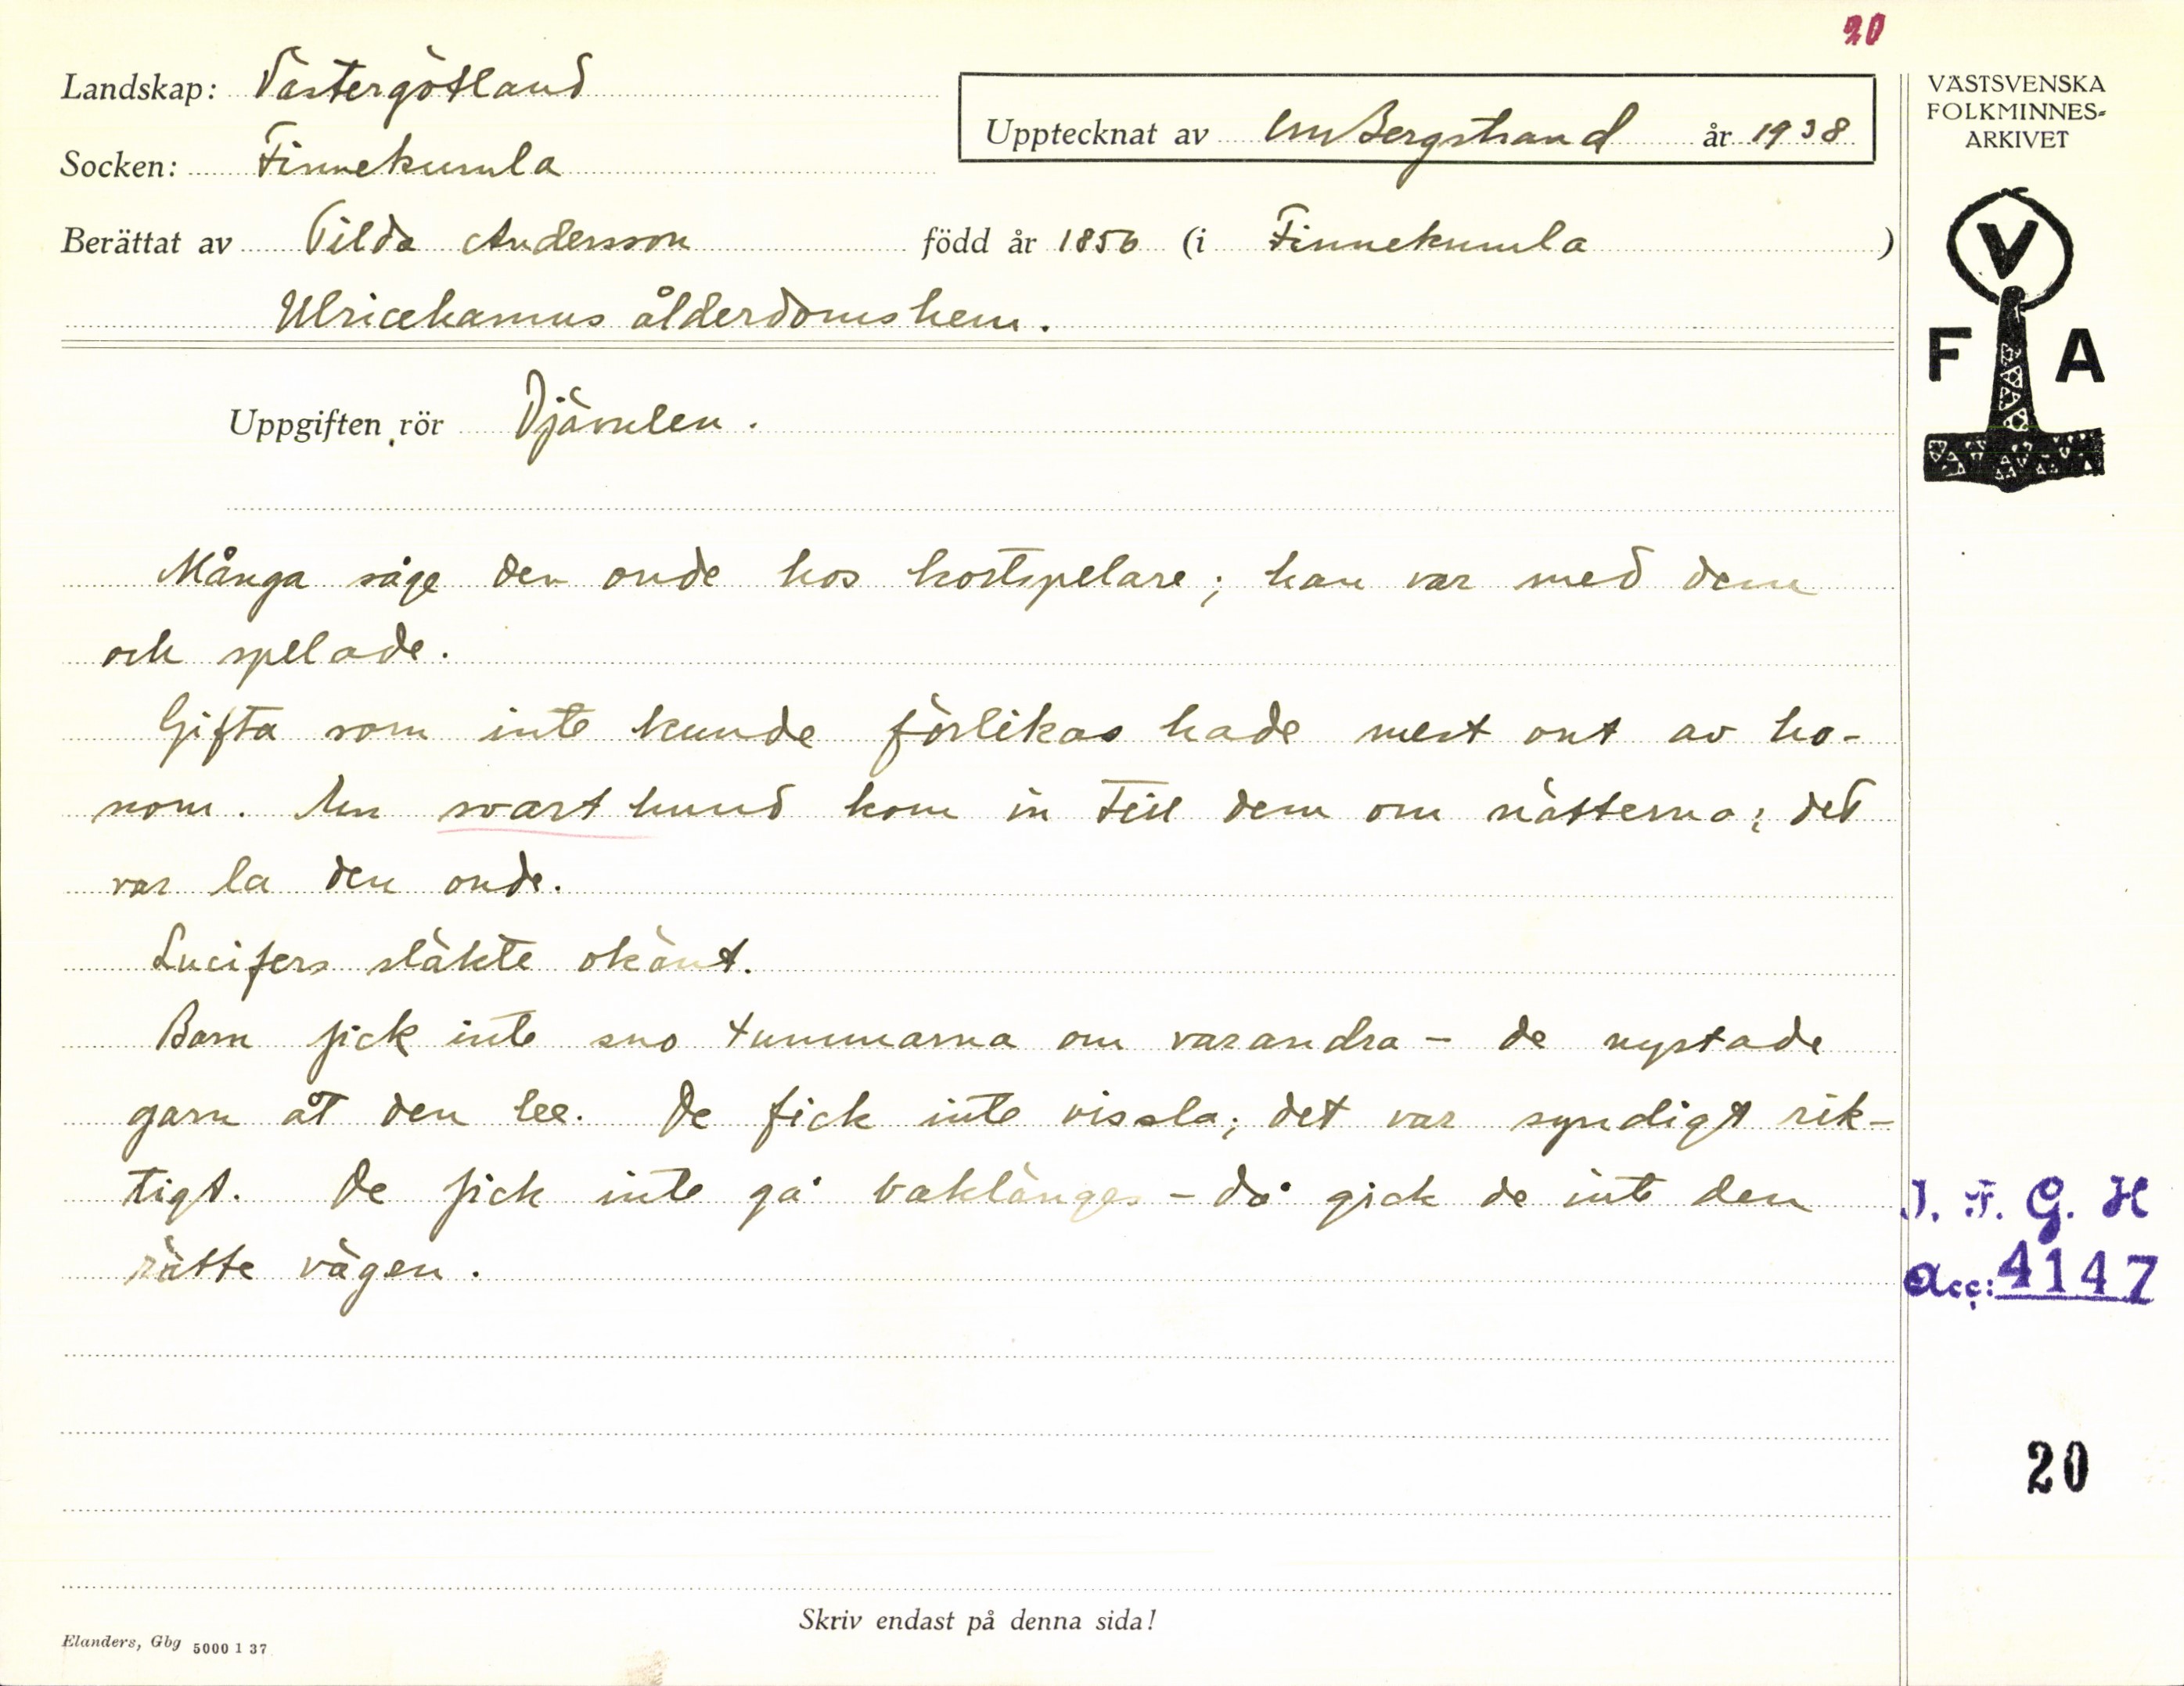 20
Landskap: Västergötland
Socken: Finnekumla
Upptecknat av CMBergstrand år 1938
Berättat av Tilda Andersson född år 1856 (i Finnekumla )
Ulricehamns ålderdomshem.
VÄSTSVENSKA
FOLKMINNES-
ARKIVET
V
F A
Uppgiften rör Djävulen.
Många såge den onde hos kortspelare; han var med dem
och spelade.
Gifta som inte kunde förlikas hade mest ont av ho-
nom. En svart hund kom in till dem om nätterna; det
var la den onde.
Lucifers släkte okänt.
Barn fick inte sno tummarna om varandra - de nystade
garn åt den lee. De fick inte vissla; det var syndigt rik-
tigt. De fick inte gå baklänges - då gick de inte den
rätte vägen.
I. F. G. H
Acc: 4147
20
Skriv endast på denna sida!
Elanders, Gbg 5000 1 37